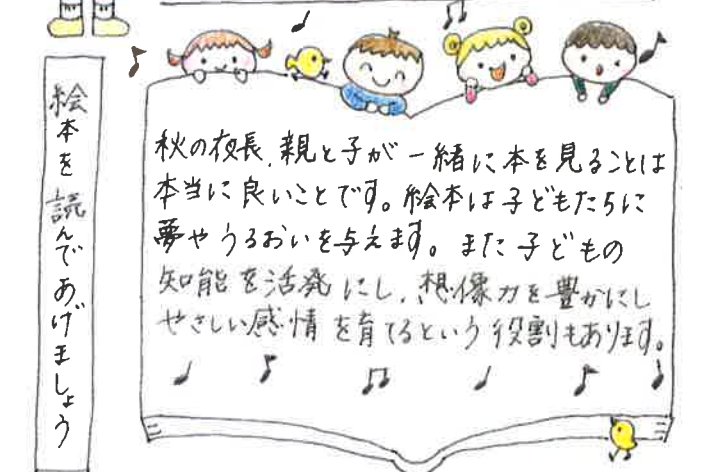 絵本を読んであげましょう
秋の夜長、親と子が一緒に本を見ることは
本当に良いことです。絵本は子どもたちに
夢やうるおいを与えます。また子どもの
知能を活発にし、想像力を豊かにし
やさしい感情を育てるという役割もあります。